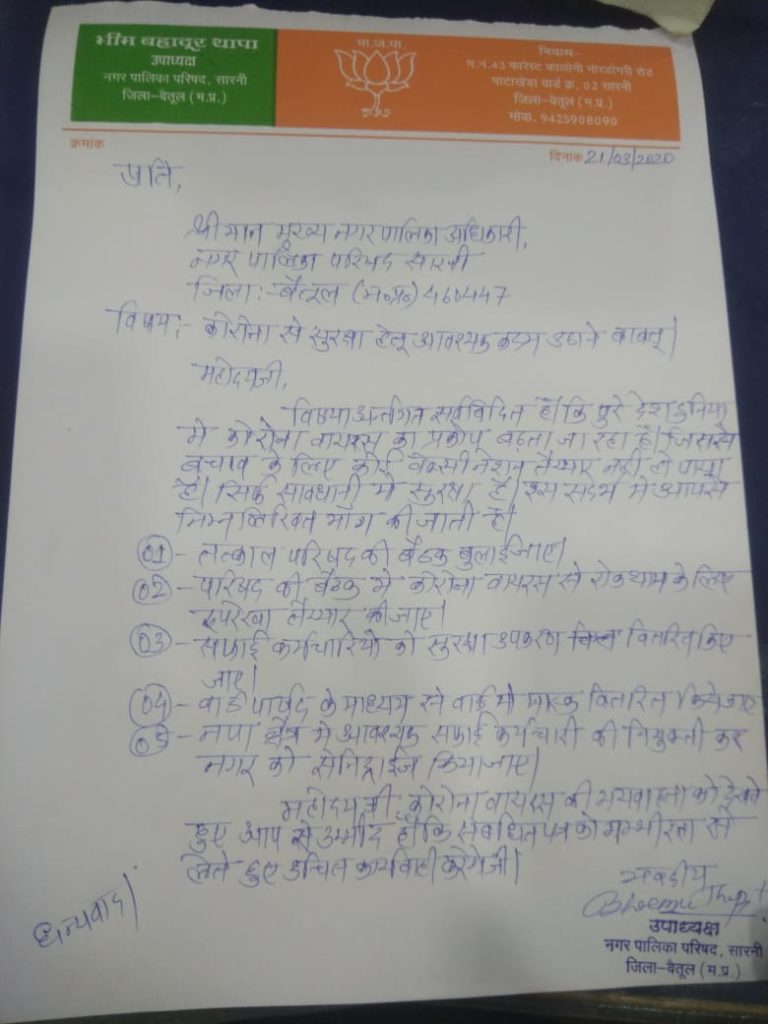 भीम बहादूर थापा
उपाध्यक्ष
नगर पालिका परिषद, सारनी
जिला-बैतूल (म.प्र.)
भा.ज.पा.
निवास-
म.नं.43 फारेस्ट कालोनी मोरडोंगरी रोड
पाटाखेड़ा वार्ड क्र. 02 सारनी
जिला-बैतूल (म.प्र.)
मोबा. 9425908090
क्रमांक
दिनांक 21/03/2020
प्रति,
श्रीमान मुख्य नगरपालिका अधिकारी,
नगर पालिका परिषद सारनी
जिला:- बैतूल (म०प्र०) 460447
विषय:- कोरोना से सुरक्षा हेतू आवश्यक कदम उठाने बाबत्।
महोदयजी,
विषयाअर्न्तगत सर्वविदित है। कि पुरे देश दुनिया
मे कोरोना वायरस का प्रकोप बढ़ता जा रहा है। जिससे
बचाव के लिए कोई वेक्सीनेशन तैय्यार नही हो पाया
है। सिर्फ सावधानी मे सुरक्षा है। इस संदर्भ मे आपसे
निम्नलिखित मांग की जाती है।
01 - तत्काल परिषद की बैठक बुलाई जाए।
02 - परिषद की बैठक मे कोरोना वायरस से रोकथाम के लिए
रुपरेखा तैय्यार की जाए।
03 - सफाई कर्मचारियो को सुरक्षा उपकरण वितरित किए
जाए।
04 - वार्ड पार्षद के माध्यम से वार्ड मे मास्क वितरित किये जाए
05 - नपा क्षेत्र मे आवश्यक सफाई कर्मचारी की नियुक्ती कर
नगर को सेनिट्राईज किया जाए।
महोदय जी, कोरोना वायरस की भयवाहता को देखते
हुए आप से उम्मीद है कि संबंधित पत्र को गम्भीरता से
लेते हुए उचित कार्यवाही करेगेजी।
धन्यवाद।
भवदीय
उपाध्यक्ष
नगर पालिका परिषद, सारनी
जिला-बैतूल (म.प्र.)